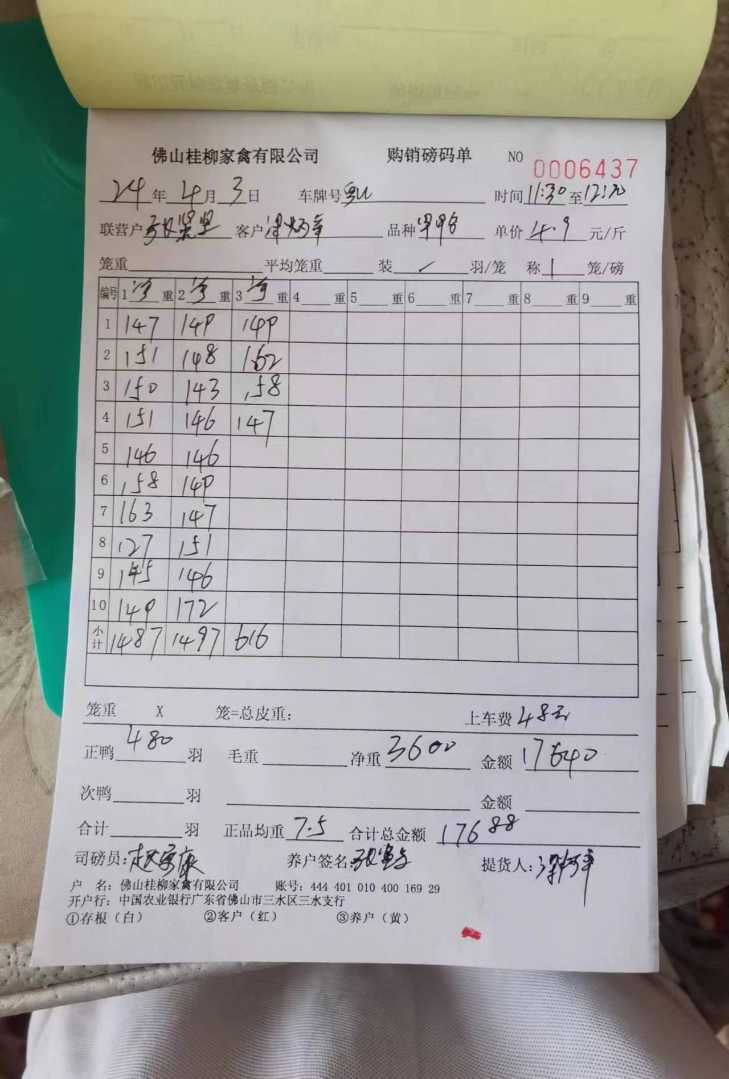 佛山桂柳家禽有限公司 购销磅码单 NO 0006437
24年4月3日 车牌号 时间11:30至12:20
联营户 客户 品种 单价4.9元/斤
笼重 平均笼重 装 羽/笼 称1笼/磅
编号 1净重 2净重 3净重 4重 5重 6重 7重 8重 9重
1 147 149 149
2 151 148 162
3 150 143 158
4 151 146 147
5 146 146
6 158 149
7 163 147
8 127 151
9 145 146
10 149 172
小计 1487 1497 616
笼重 X 笼=总皮重: 上车费48元
正鸭480羽 毛重 净重3600 金额17640
次鸭 羽 金额
合计 羽 正品均重7.5 合计总金额17688
司磅员: 养户签名 提货人:
户 名: 佛山桂柳家禽有限公司 账号: 444 401 010 400 169 29
开户行: 中国农业银行广东省佛山市三水区三水支行
①存根(白) ②客户(红) ③养户(黄)